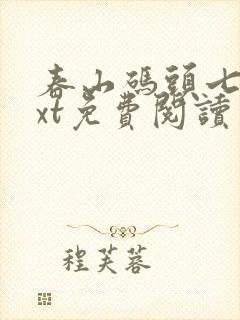 春山碼頭七
xt免費閱讀
程芙蓉